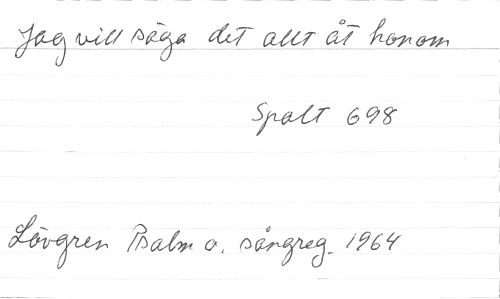 Jag vill säga det allt åt honom
Spalt 698
Lövgren Psalm o. sångreg. 1964